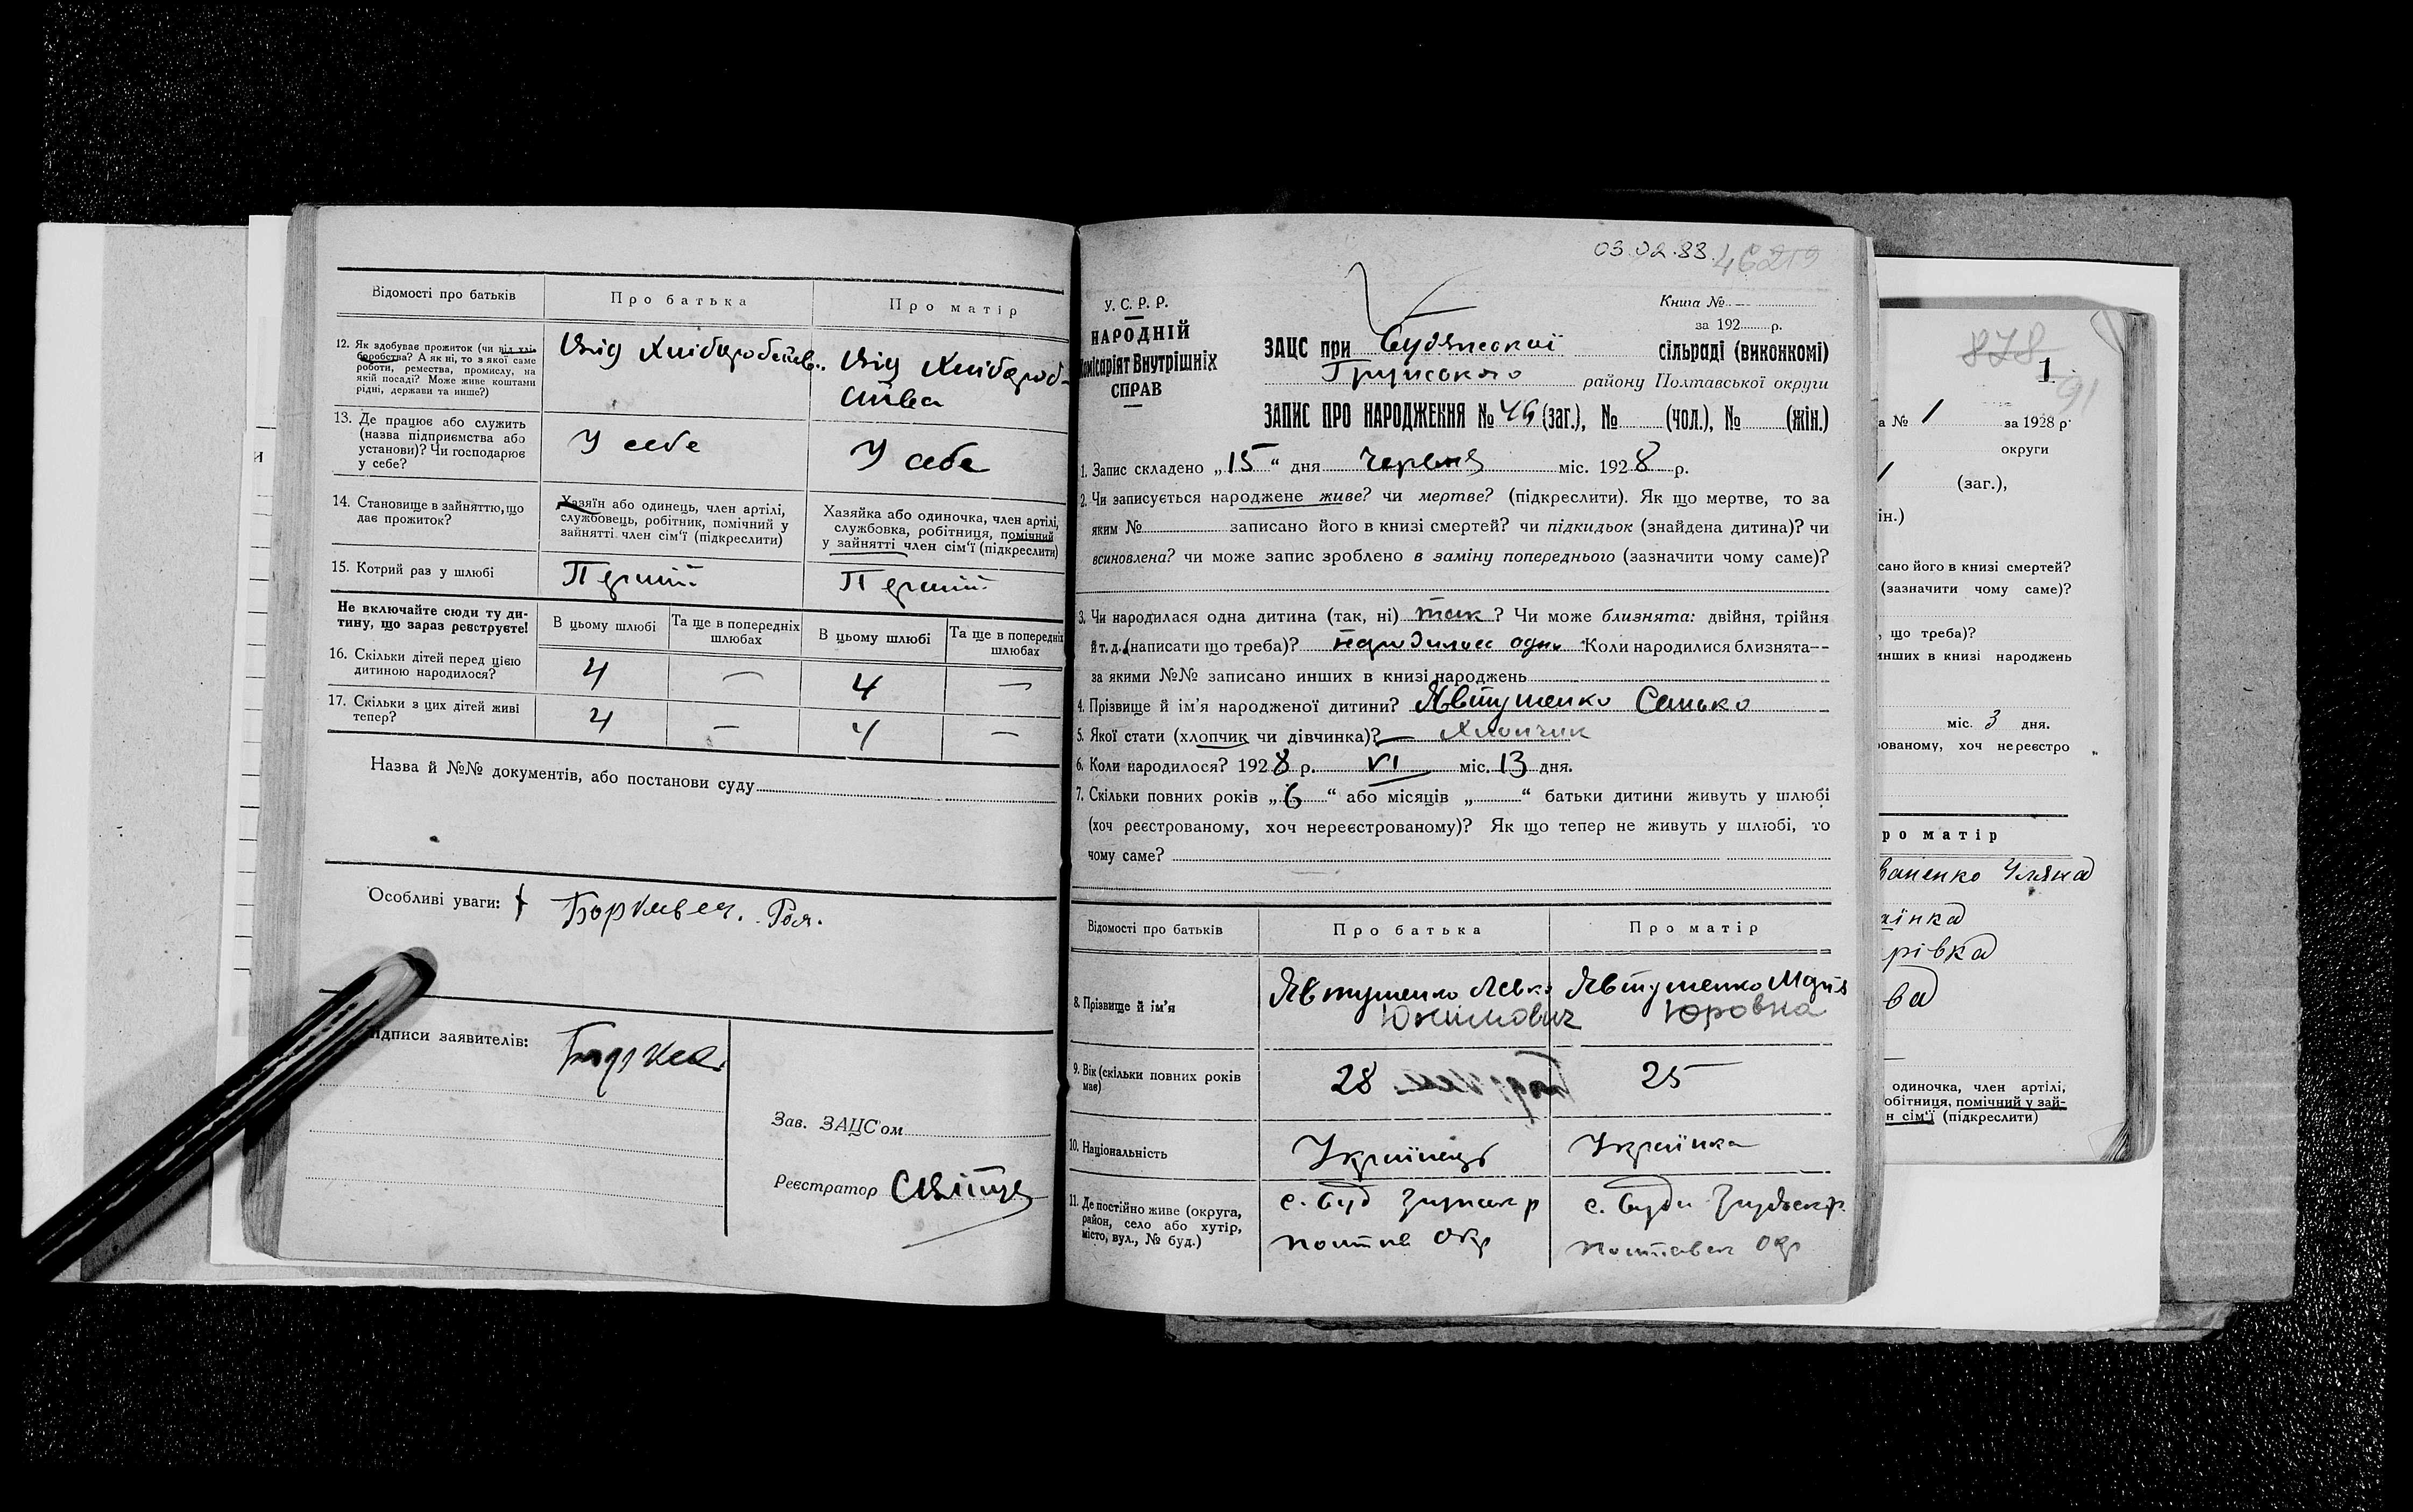 Відомості про батьків
Про батька
Про матір
12. Як здобуває прожиток (чи від хлі-
боробства? А як ні, то з якої саме
роботи, ремества, промислу, на
якій посаді? Може живе коштами
рідні, держави та инше?)
Від Хліборобств.
Від Хлібороб-
ства
13. Де працює або служить
(назва підприємства або
установи)? Чи господарює
у себе?
У себе
У себе
14. Становище в зайняттю, що
дає прожиток?
Хазяїн або одинець, член артілі,
службовець, робітник, помічний у
зайнятті член сім'ї (підкреслити)
Хазяйка або одиночка, член артілі,
службовка, робітниця, помічний
у зайнятті член сім'ї (підкреслити)
15. Котрий раз у шлюбі
Перший
Перший
Не включайте сюди ту ди-
тину, що зараз реєструєте!
В цьому шлюбі
Та ще в попередніх
шлюбах
В цьому шлюбі
Та ще в попередніх
шлюбах
16. Скільки дітей перед цією
дитиною народилося?
4 — 4 —
17. Скільки з цих дітей живі
тепер?
4 — 4 —
Назва й №№ документів, або постанови суду
Особливі уваги:
Підписи заявителів:
Зав. ЗАЦС'ом
Реєстратор
03.02.83.
У. С. Р. Р.
НАРОДНІЙ
Комісаріят Внутрішніх
СПРАВ
Книга №
за 192 р.
ЗАЦС при Будянській сільраді (виконкомі)
Грунського району Полтавської округи
ЗАПИС ПРО НАРОДЖЕННЯ № 46 (заг.), № (чол.), № (жін.)
1. Запис складено „15“ дня червня міс. 1928 р.
2. Чи записується народжене живе? чи мертве? (підкреслити). Як що мертве, то за
яким № записано його в книзі смертей? чи підкидьок (знайдена дитина)? чи
всиновлена? чи може запис зроблено в заміну попереднього (зазначити чому саме)?
3. Чи народилася одна дитина (так, ні) так? Чи може близнята: двійня, трійня
й т. д. (написати що треба)? народилось одн Коли народилися близнята—
за якими №№ записано инших в книзі народжень
4. Прізвище й ім'я народженої дитини? Явтушенко Санько
5. Якої стати (хлопчик чи дівчинка)? Хлопчик
6. Коли народилося? 1928 р. VI міс. 13 дня.
7. Скільки повних років „6“ або місяців „ “ батьки дитини живуть у шлюбі
(хоч реєстрованому, хоч нереєстрованому)? Як що тепер не живуть у шлюбі, то
чому саме?
Відомості про батьків
Про батька
Про матір
8. Прізвище й ім'я
Явтушенко Левко
Юхимович
Явтушенко Марія
Юровна
9. Вік (скільки повних років
має)
28
25
10. Національність
Українець
Українка
11. Де постійно живе (округа,
район, село або хутір,
місто, вул., № буд.)
с. Буд
с. Буди
Полтавськ Окр
878
1
91
а № 1 за 1928 р.
округи
1 (заг.),
ін.)
сано його в книзі смертей?
(зазначити чому саме)?
, що треба)?
инших в книзі народжень
міс. 3 дня.
рованому, хоч нереєстро
ро матір
ваненко Уляна
аїнка
рівка
ва
одиночка, член артілі,
обітниця, помічний у зай-
н сім'ї (підкреслити)